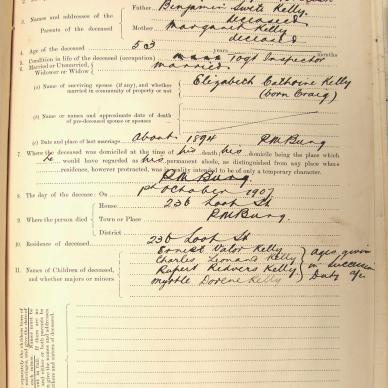 Father Benjamin Swits Kelly
deceased
3. Names and addresses of the
Parents of the deceased
Mother Margaret Kelly
deceased
4. Age of the deceased 50 years months
5. Condition in life of the deceased (occupation) Inspector
6. Married or Unmarried, Widower or Widow married
(a) Name of surviving spouse (if any), and whether married in community of property or not
Elizabeth Cathrine Kelly
(born Craig)
(b) Name or names and approximate date of death of pre-deceased spouse or spouses
(c) Date and place of last marriage About 1894 P.M.Burg
7. Where the deceased was domiciled at the time of his death, his domicile being the place which
he would have regarded as his permanent abode, as distinguished from any place where
residence, however protracted, was in reality intended to be only of a temporary character.
P.M.Burg
8. The day of the decease: On 1st October 1907
House 236 Loop St
9. Where the person died Town or Place P.M.Burg
District
10. Residence of deceased 236 Loop St
Ernest Victor Kelly
Charles Leonard Kelly
11. Names of Children of deceased, and whether majors or minors
Rupert Redvers Kelly
Myrtle Dorene Kelly
Ages given
in Succession
Duty a/c